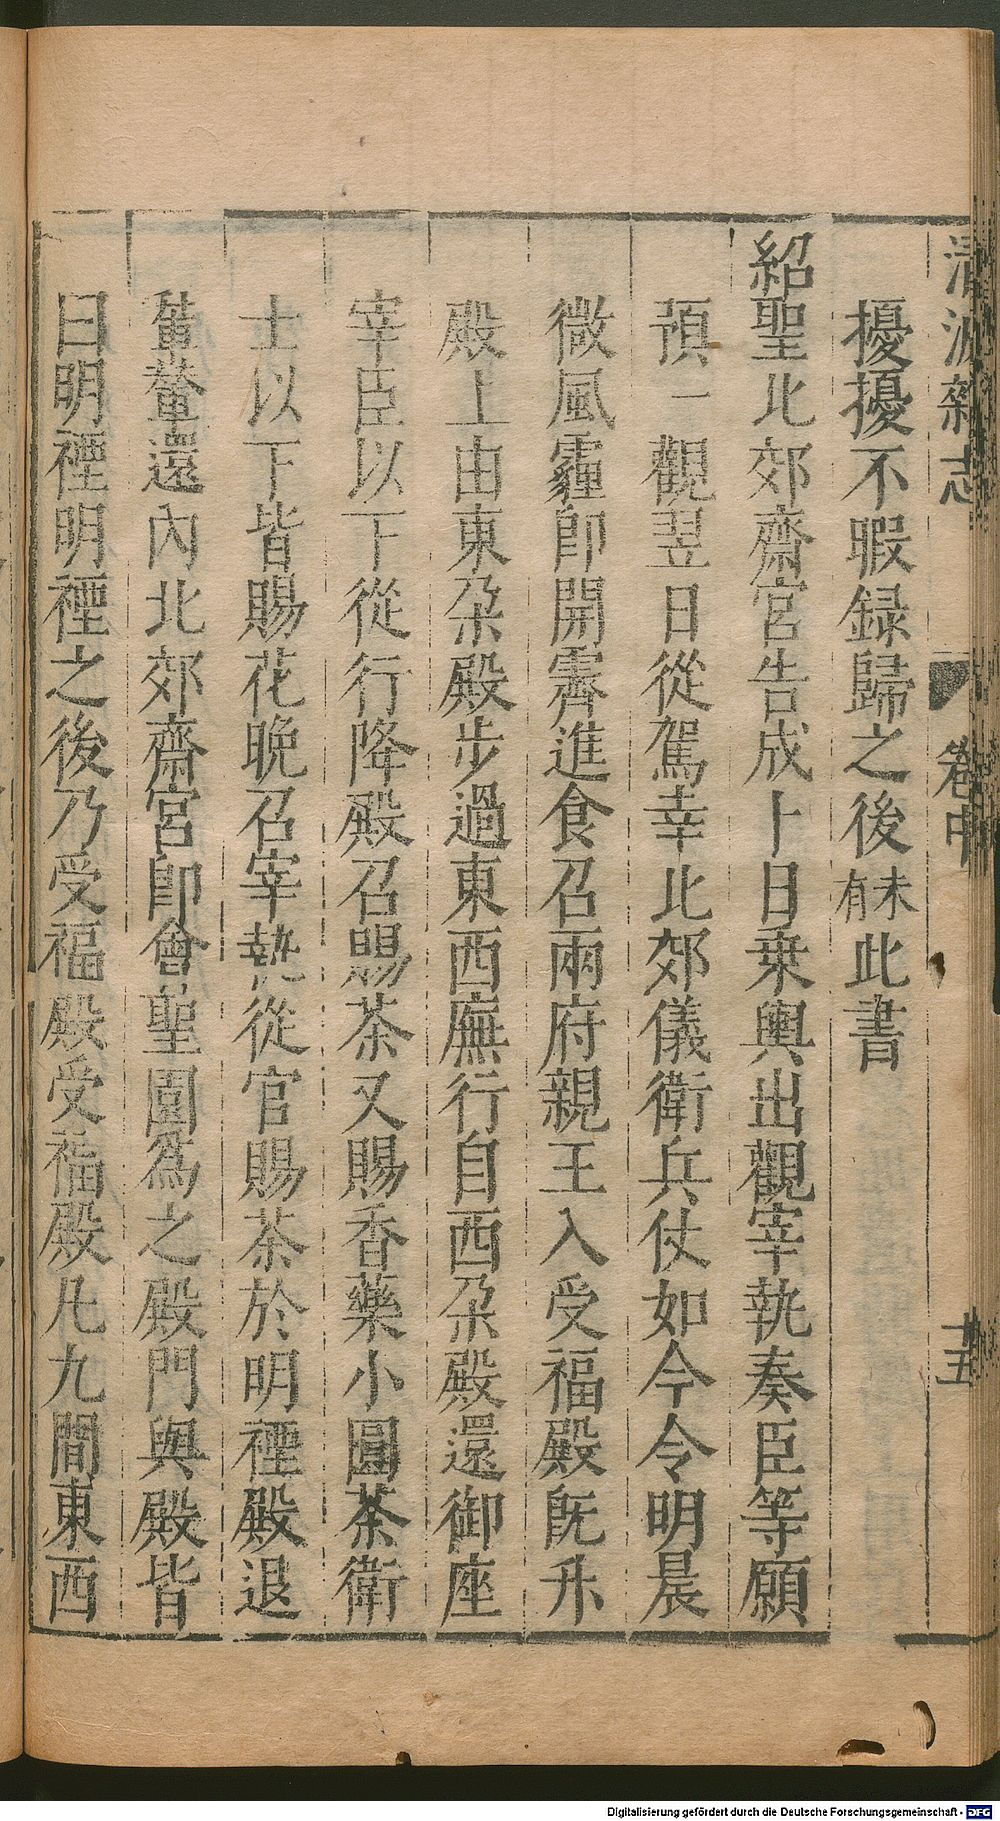 清波雜志 卷中 十五
擾擾不暇録歸之後未有此書
紹聖北郊齋宮告成上日乗輿出觀宰執奏臣等願
預一觀翌日從駕幸北郊儀衛兵仗如今令明晨
微風霾即開霽進食召兩府親王入受福殿旣升
殿上由東朶殿步過東西廡行自西朶殿還御座
宰臣以下從行降殿召賜茶又賜香藥小圓茶衛
士以下皆賜花晚召宰執從官賜茶於明禋殿退
輦還内北郊齋宮卽會聖園爲之殿門與殿皆
曰明禋明禋之後乃受福殿受福殿凡九間東西
Digitalisierung gefördert durch die Deutsche Forschungsgemeinschaft - DFG